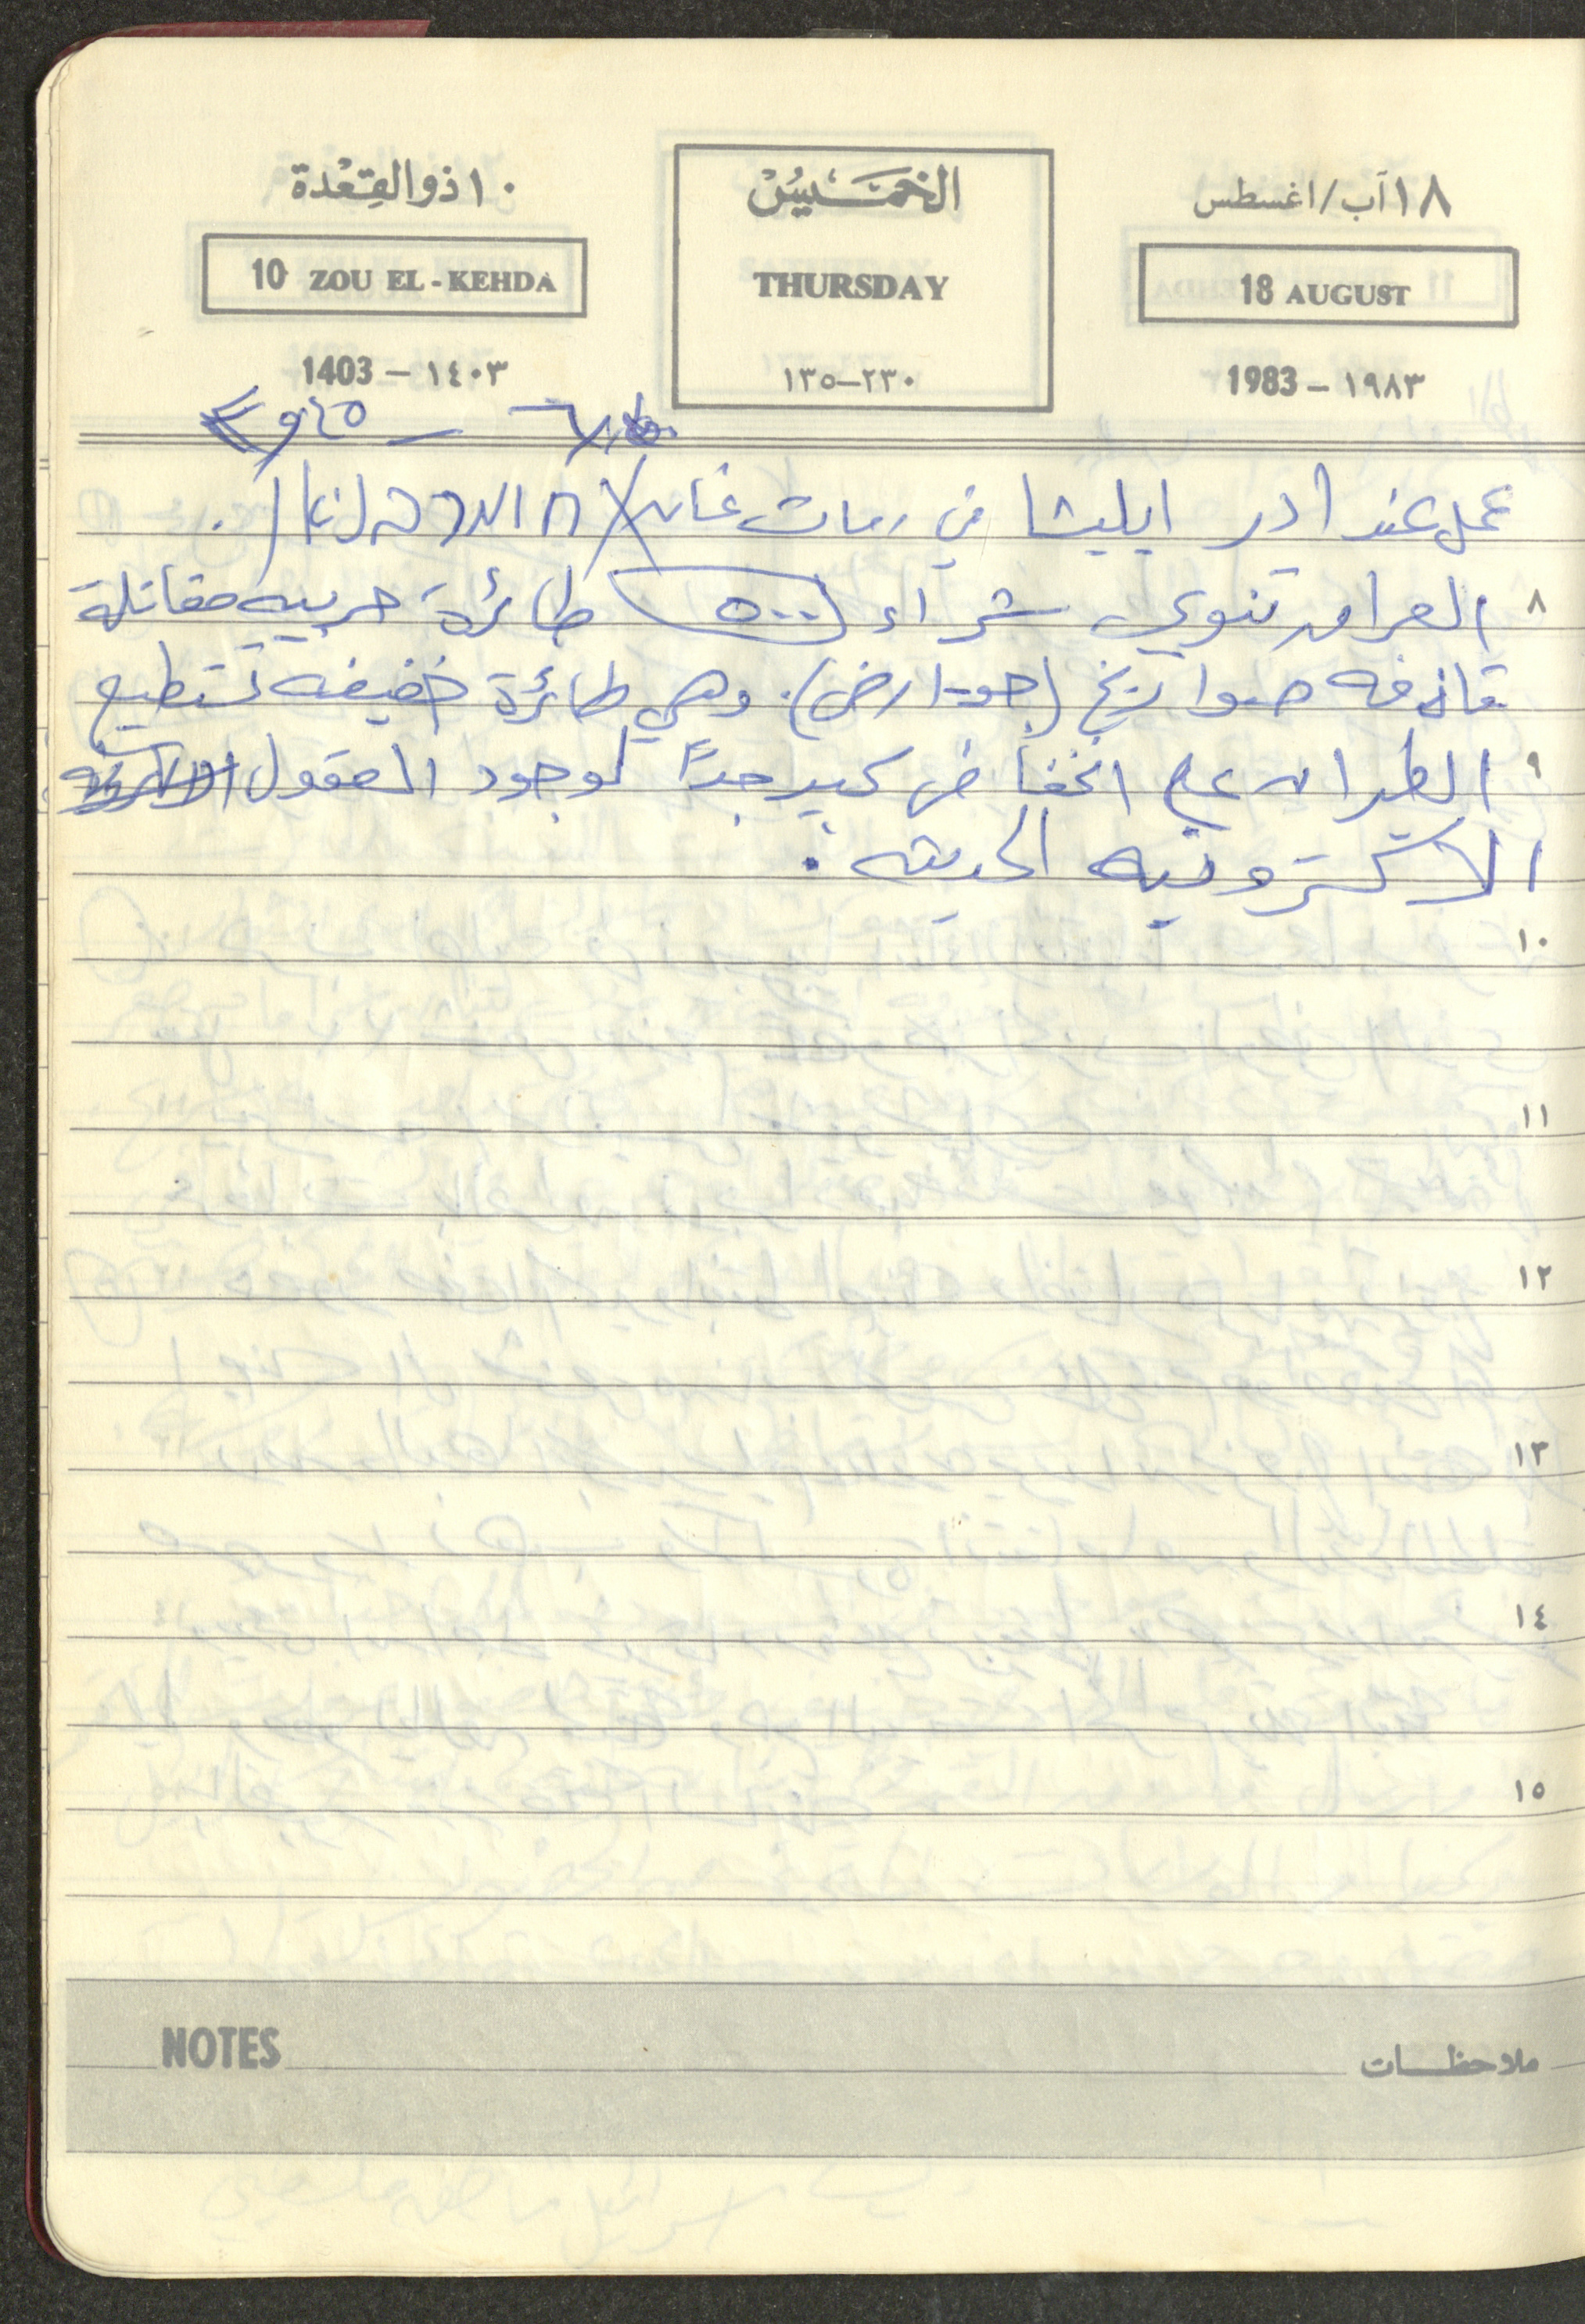 ١٨ آب/اغسطس
18 AUGUST
1983 - ١٩٨٣
الخميس
THURSDAY
١٣٥-٢٣٠
١٠ ذو القعدة
10 ZOU EL-KEHDA
1403 - ١٤٠٣
عمل عند ادر ايليشا في رمات غان
٨
العراق تنوي شراء (٥٠٠) طائرة حربيه مقاتلة
قاذفه صواريخ (جو-ارض). وهي طائرة خفيفه تستطيع
٩
الطيران على انخفاض كبير جداً لوجود العقول
الالكترونيه الحديثه.
١٠
١١
١٢
١٣
١٤
١٥
NOTES
ملاحظات